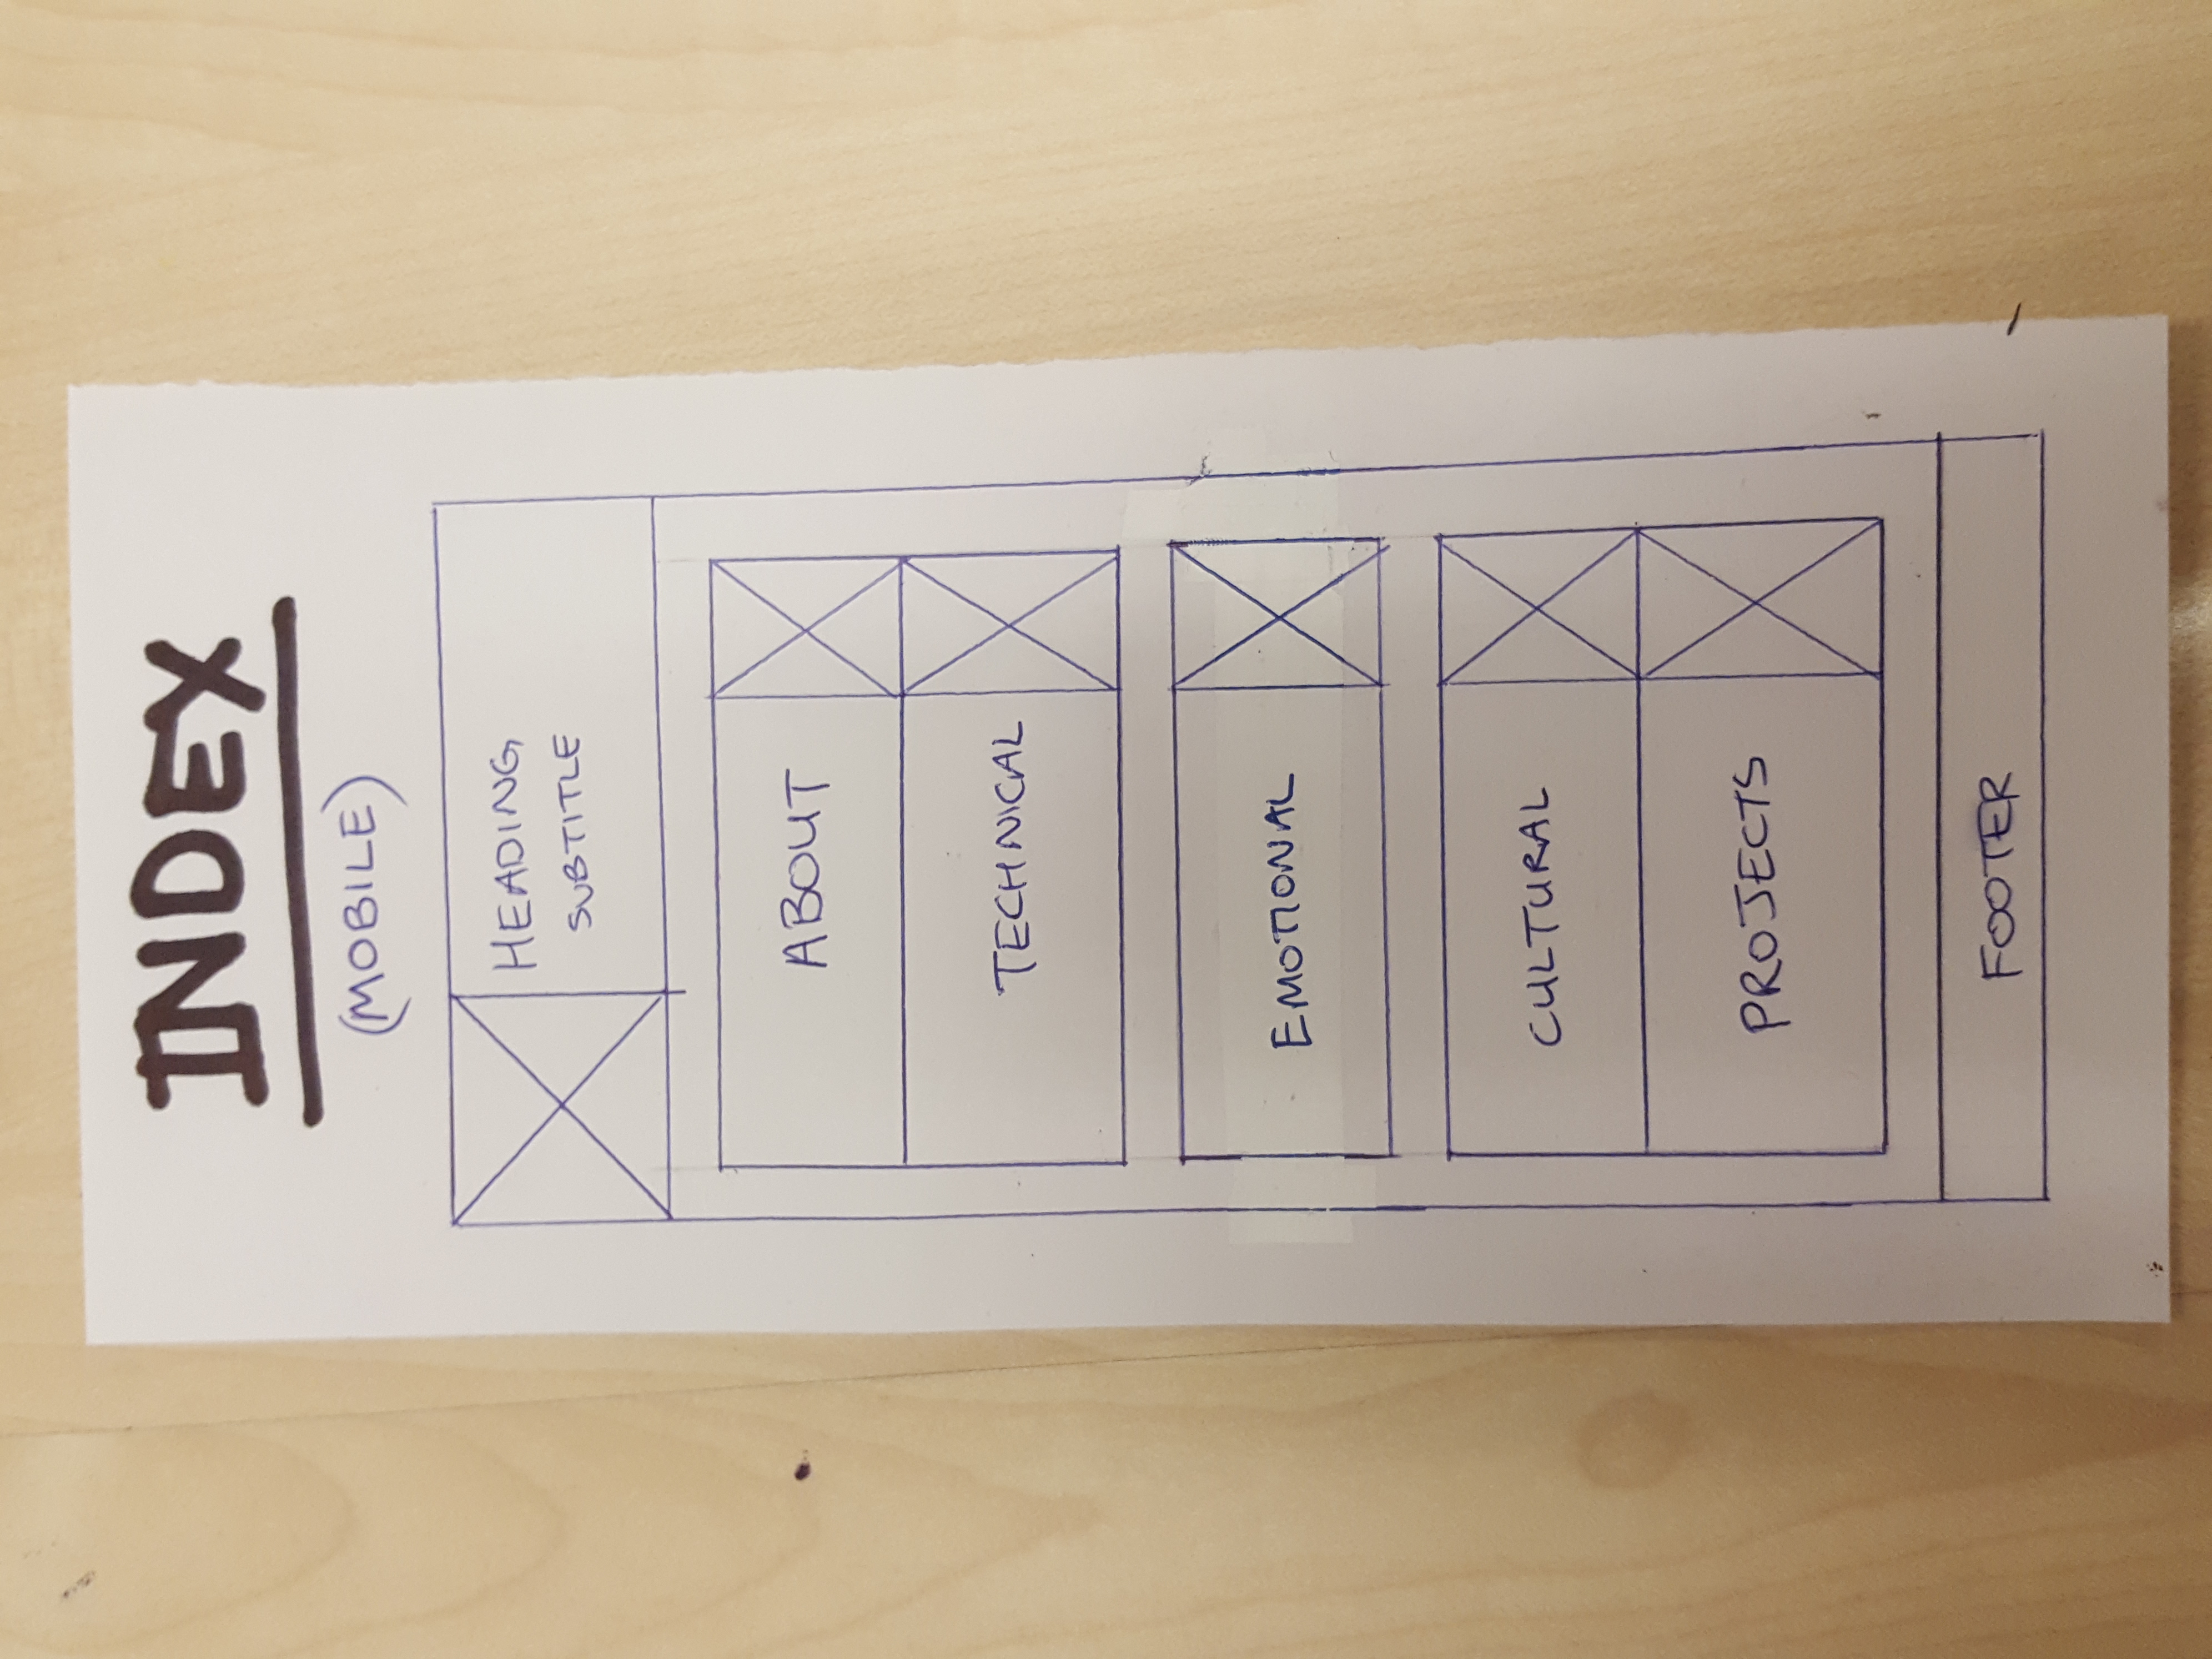 INDEX
(MOBILE)
HEADING
SUBTITLE
ABOUT
TECHNICAL
EMOTIONAL
CULTURAL
PROJECTS
FOOTER